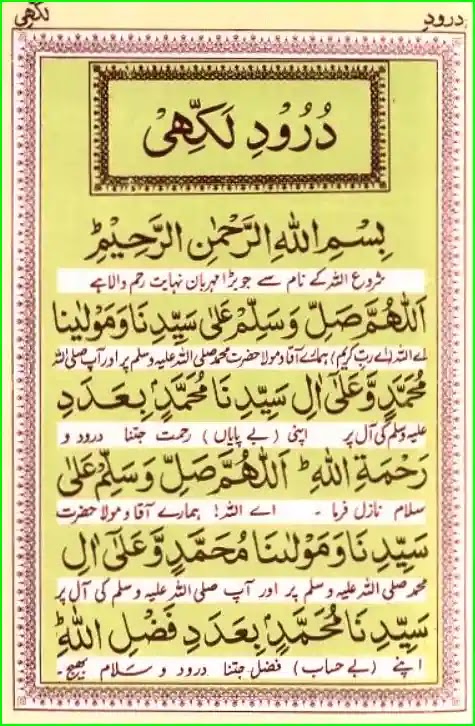 درود
لکھی
دُرُودِ لَکِّھِیْ
بِسْمِ اللهِ الرَّحْمٰنِ الرَّحِیْمِ ؕ
شروع اللہ کے نام سے جو بڑا مہربان نہایت رحم والا ہے
اَللّٰهُمَّ صَلِّ وَسَلِّمْ عَلٰی سَیِّدِنَا وَمَوْلٰینَا
اے اللہ (اے ربِّ کریم) ہمارے آقا و مولا حضرت محمد صلی اللہ علیہ وسلم پر اور آپ صلی اللہ
مُحَمَّدٍ وَّعَلٰۤی اٰلِ سَیِّدِنَا مُحَمَّدٍۭ بِعَدَدِ
علیہ وسلم کی آل پر اپنی (بے پایاں) رحمت جتنا درود و
رَحْمَةِ اللهِ ؕ اَللّٰهُمَّ صَلِّ وَسَلِّمْ عَلٰی
سلام نازل فرما ۔ اے اللہ! ہمارے آقا و مولا حضرت
سَیِّدِنَا وَمَوْلٰینَا مُحَمَّدٍ وَّعَلٰۤی اٰلِ
محمد صلی اللہ علیہ وسلم پر اور آپ صلی اللہ علیہ وسلم کی آل پر
سَیِّدِنَا مُحَمَّدٍۭ بِعَدَدِ فَضْلِ اللهِ ؕ
اپنے (بے حساب) فضل جتنا درود و سلام بھیج ۔